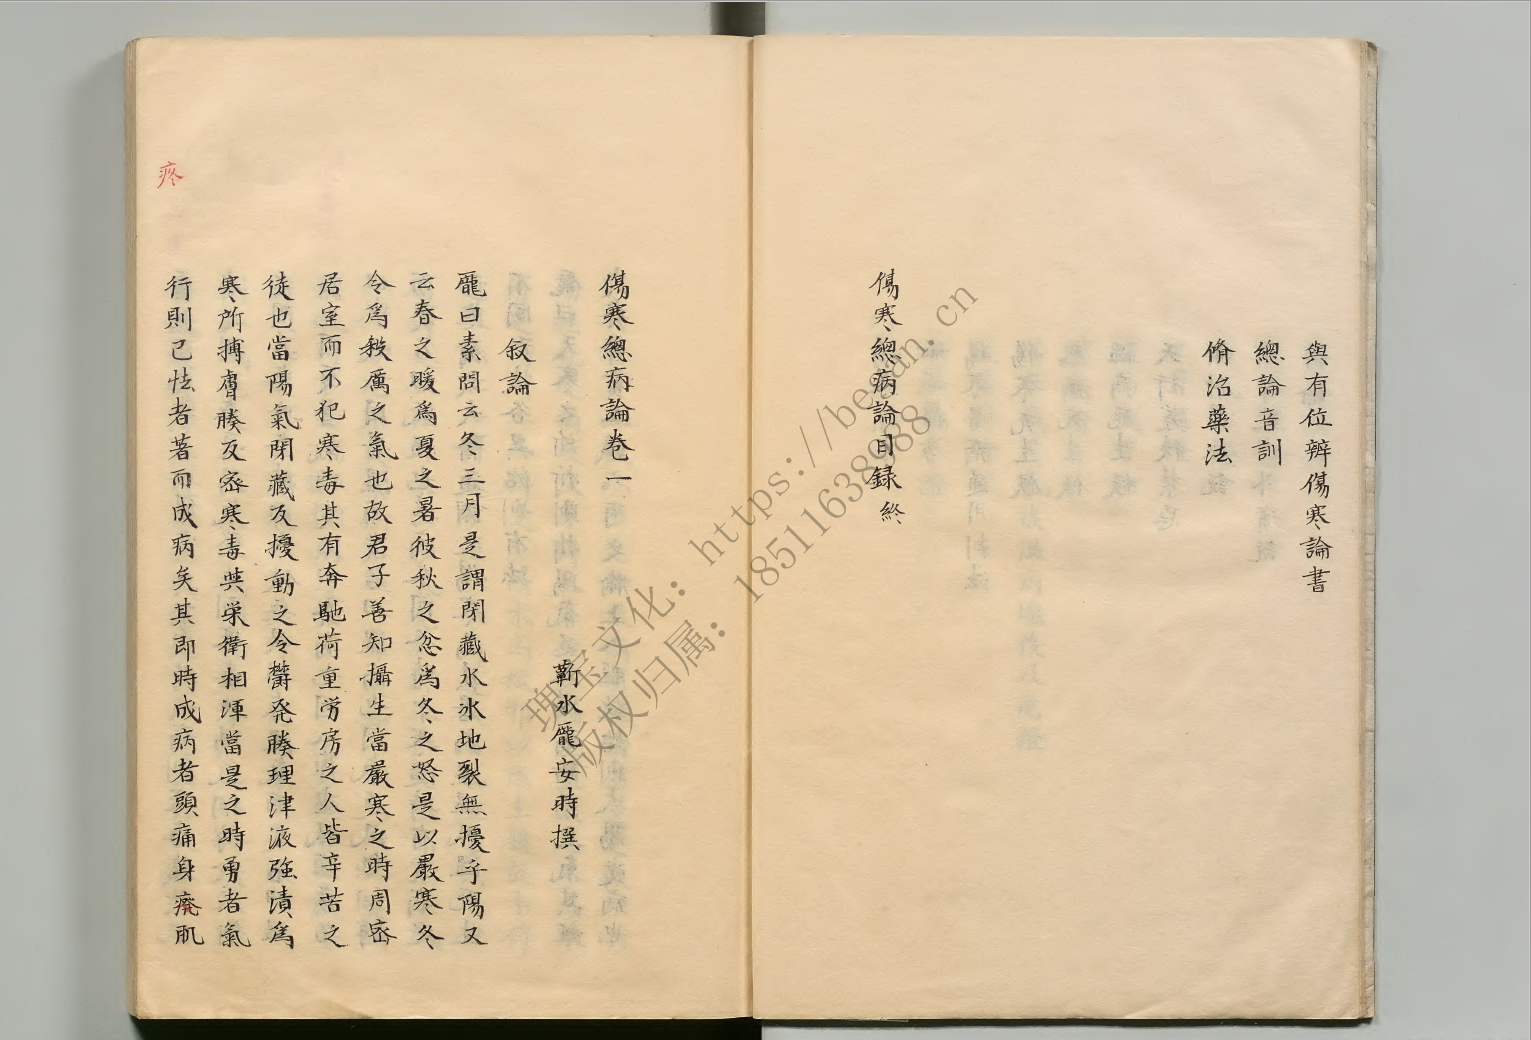 與有位辨傷寒論書
總論音訓
脩治藥法
傷寒總病論目録終
傷寒總病論卷一
蘄水龐安時撰
叙論
龐曰素問云冬三月是謂閉藏水冰地裂無擾乎陽又
云春之暖爲夏之暑彼秋之忿爲冬之怒是以嚴寒冬
令爲殺厲之氣也故君子善知攝生當嚴寒之時周密
居室而不犯寒毒其有奔馳荷重労房之人皆辛苦之
徒也當陽氣閉藏反擾動之令欝発腠理津液強漬爲
寒所搏膚腠反密寒毒與栄衛相渾當是之時勇者氣
行則已怯者著而成病矣其即時成病者頭痛身疼肌
疼
瑰宝文化：https://bestan.cn
版权归属：18511638988